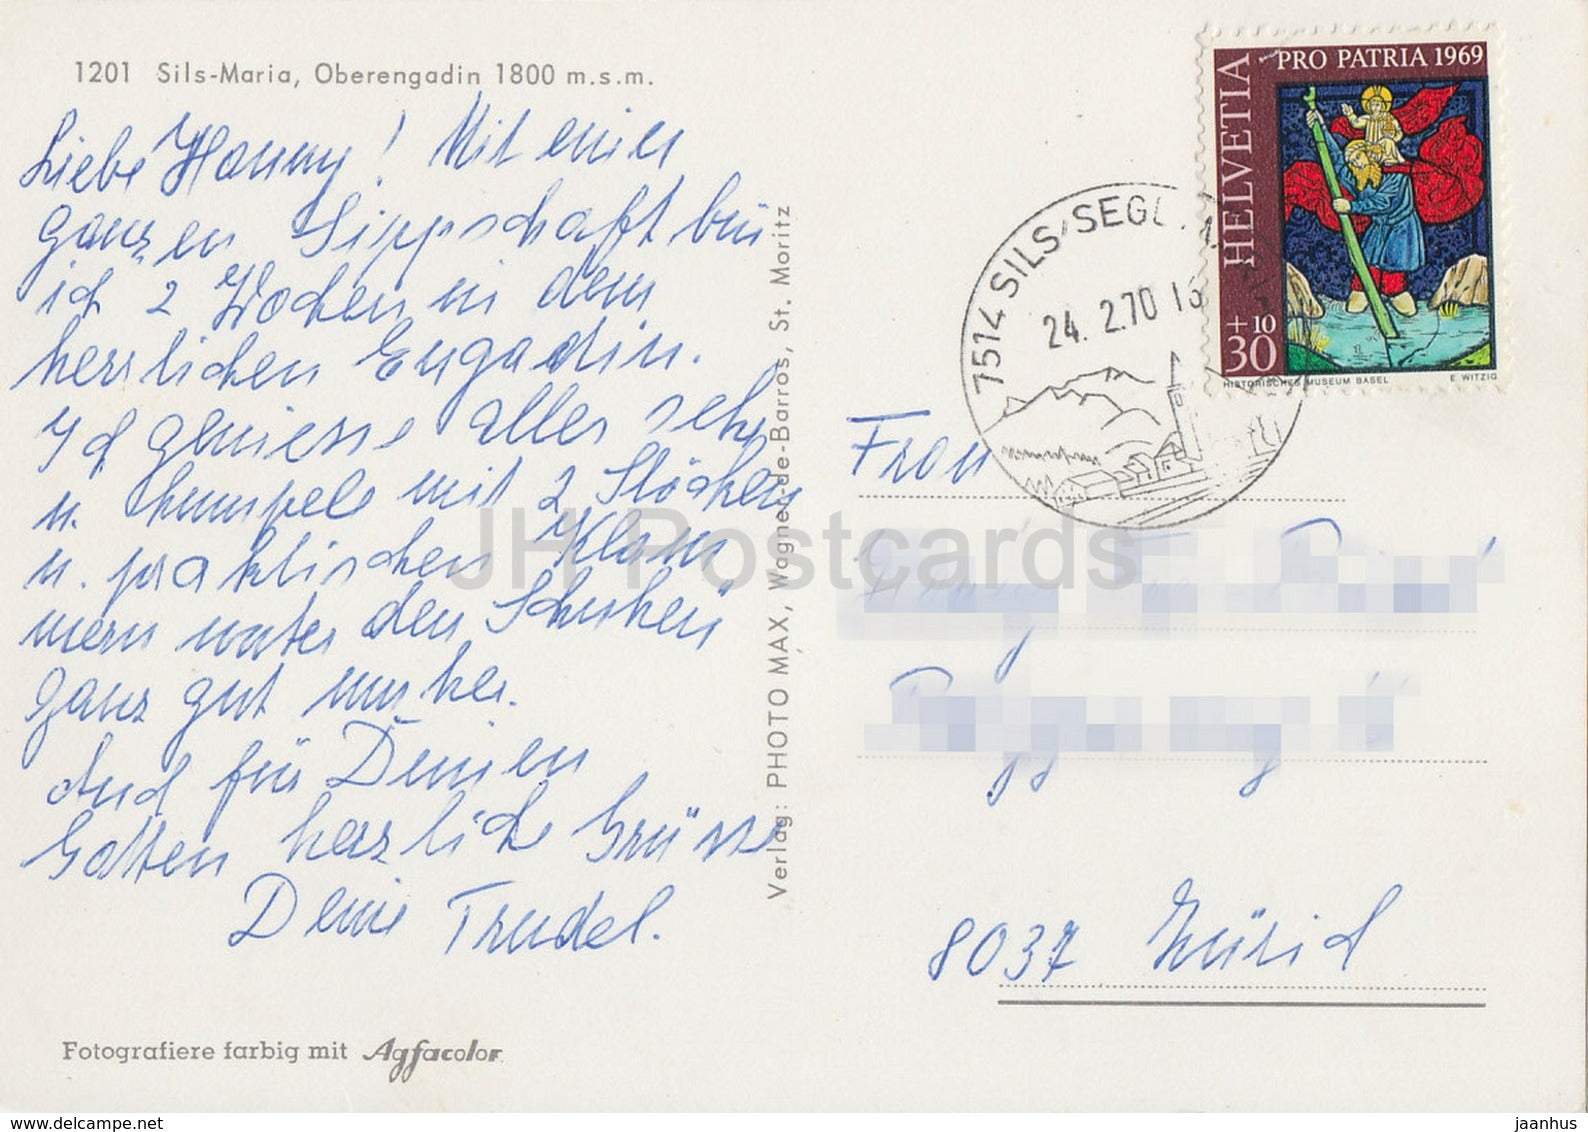 1201 Sils-Maria, Oberengadin 1800 m.s.m.
Liebe Hanny! Mit einer
ganzen Sippschaft bin
ich 2 Wochen in dem
herrlichen Engadin.
Ich geniesse alles sehr
u. humple mit 2 Stöcken
u. praktischen Klam
mern unter den Schuhen
ganz gut umher.
Und für Deinen
Gatten herzliche Grüsse
Deine Trudel.
Fotografiere farbig mit Agfacolor
Verlag: PHOTO MAX, Wagner-de-Barros, St. Moritz
HELVETIA
PRO PATRIA 1969
+10
30
HISTORISCHES MUSEUM BASEL E. WITZIG
7514 SILS/SEGL
24. 2.70
Frau
8037 Zürich
JH Postcards
www.delcampe.net
jaanhus